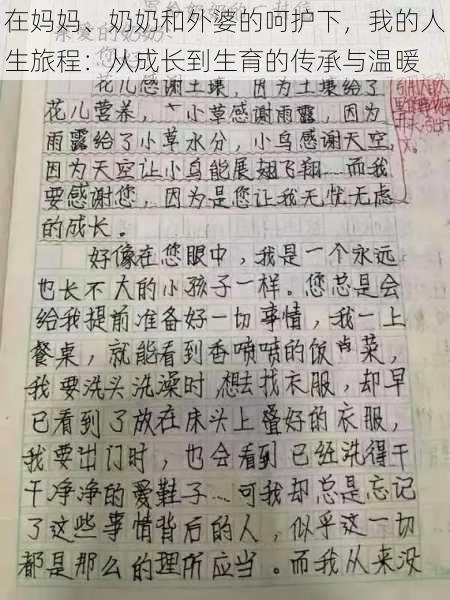 在妈妈、奶奶和外婆的呵护下，我的人
生旅程：从成长到生育的传承与温暖
花儿感谢土壤，因为土壤给了
花儿营养，小草感谢雨露，因为
雨露给了小草水分，小鸟感谢天空，
因为天空让小鸟能展翅飞翔……而我
要感谢您，因为是您让我无忧无虑
的成长。
好像在您眼中，我是一个永远
也长不大的小孩子一样。您总是会
给我提前准备好一切事情，我一上
餐桌，就能看到香喷喷的饭菜，
我要洗头洗澡时想去找衣服，却早
已看到了放在床头上叠好的衣服，
我要出门时，也会看到已经洗得干
干净净的爱鞋子…可我却总是忘记
了这些事情背后的人，似乎这一切
都是那么的理所应当。而我从来没